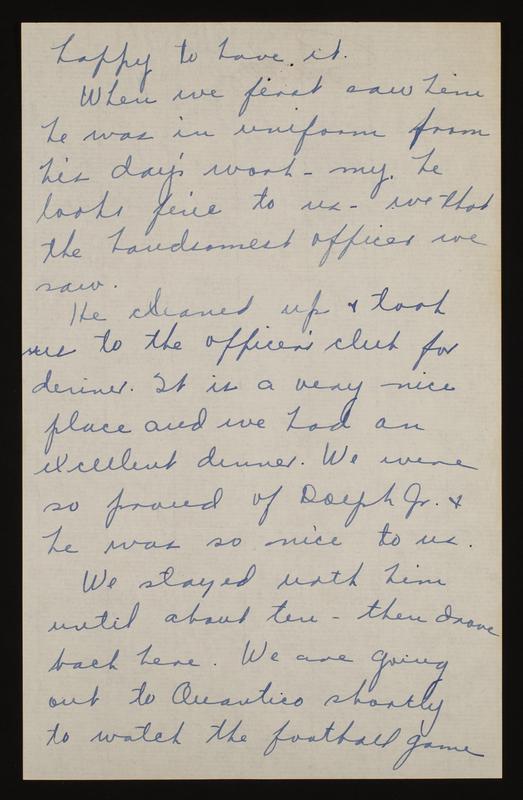 happy to have it.
When we first saw him
he was in uniform from
his day's work - my, he
looks fine to us - we thot
the handsomest officer we
saw.
He cleaned up & took
us to the officer's club for
dinner. It is a very nice
place and we had an
excellent dinner. We were
so proud of Dolph Jr. &
he was so nice to us.
We stayed with him
until about ten - then drove
back here. We are going
out to Quantico shortly
to watch the football game